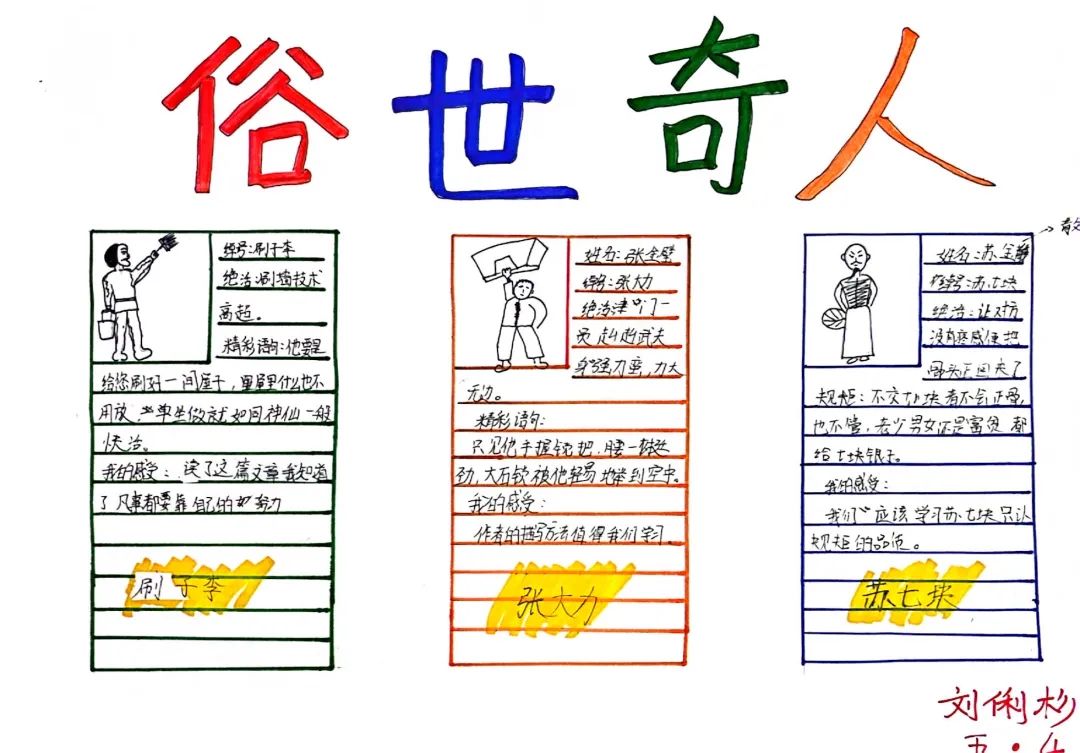 俗世奇人
绰号:刷子李
绝活:刷墙技术
高超。
精彩语句:他要是
给您刷好一间屋子,里什么也不
用放,单坐做就如同神仙一般
快活。
我的感受:读了这篇文章我知道
了凡事都要靠自己的努力
刷子李
姓名:张金璧
绰号:张大力
绝活津门一
员赳赳武夫
身强力蛮,力大
无边。
精彩语句:
只见他手握锁把,腰一挺
劲,大石锁被他轻易地举到空中。
我的感受:
作者的描写方法值得我们学习。
张大力
姓名:苏金散
绰号:苏七块
绝活:让对方
没有疼感便把
骨头正回去了
规矩:不交七块看不会正骨,
也不管,老少男女还是富贫都
给七块银子。
我的感受:
我们应该学习苏七块只认
规矩的品质。
苏七块
刘俐杉
五·4